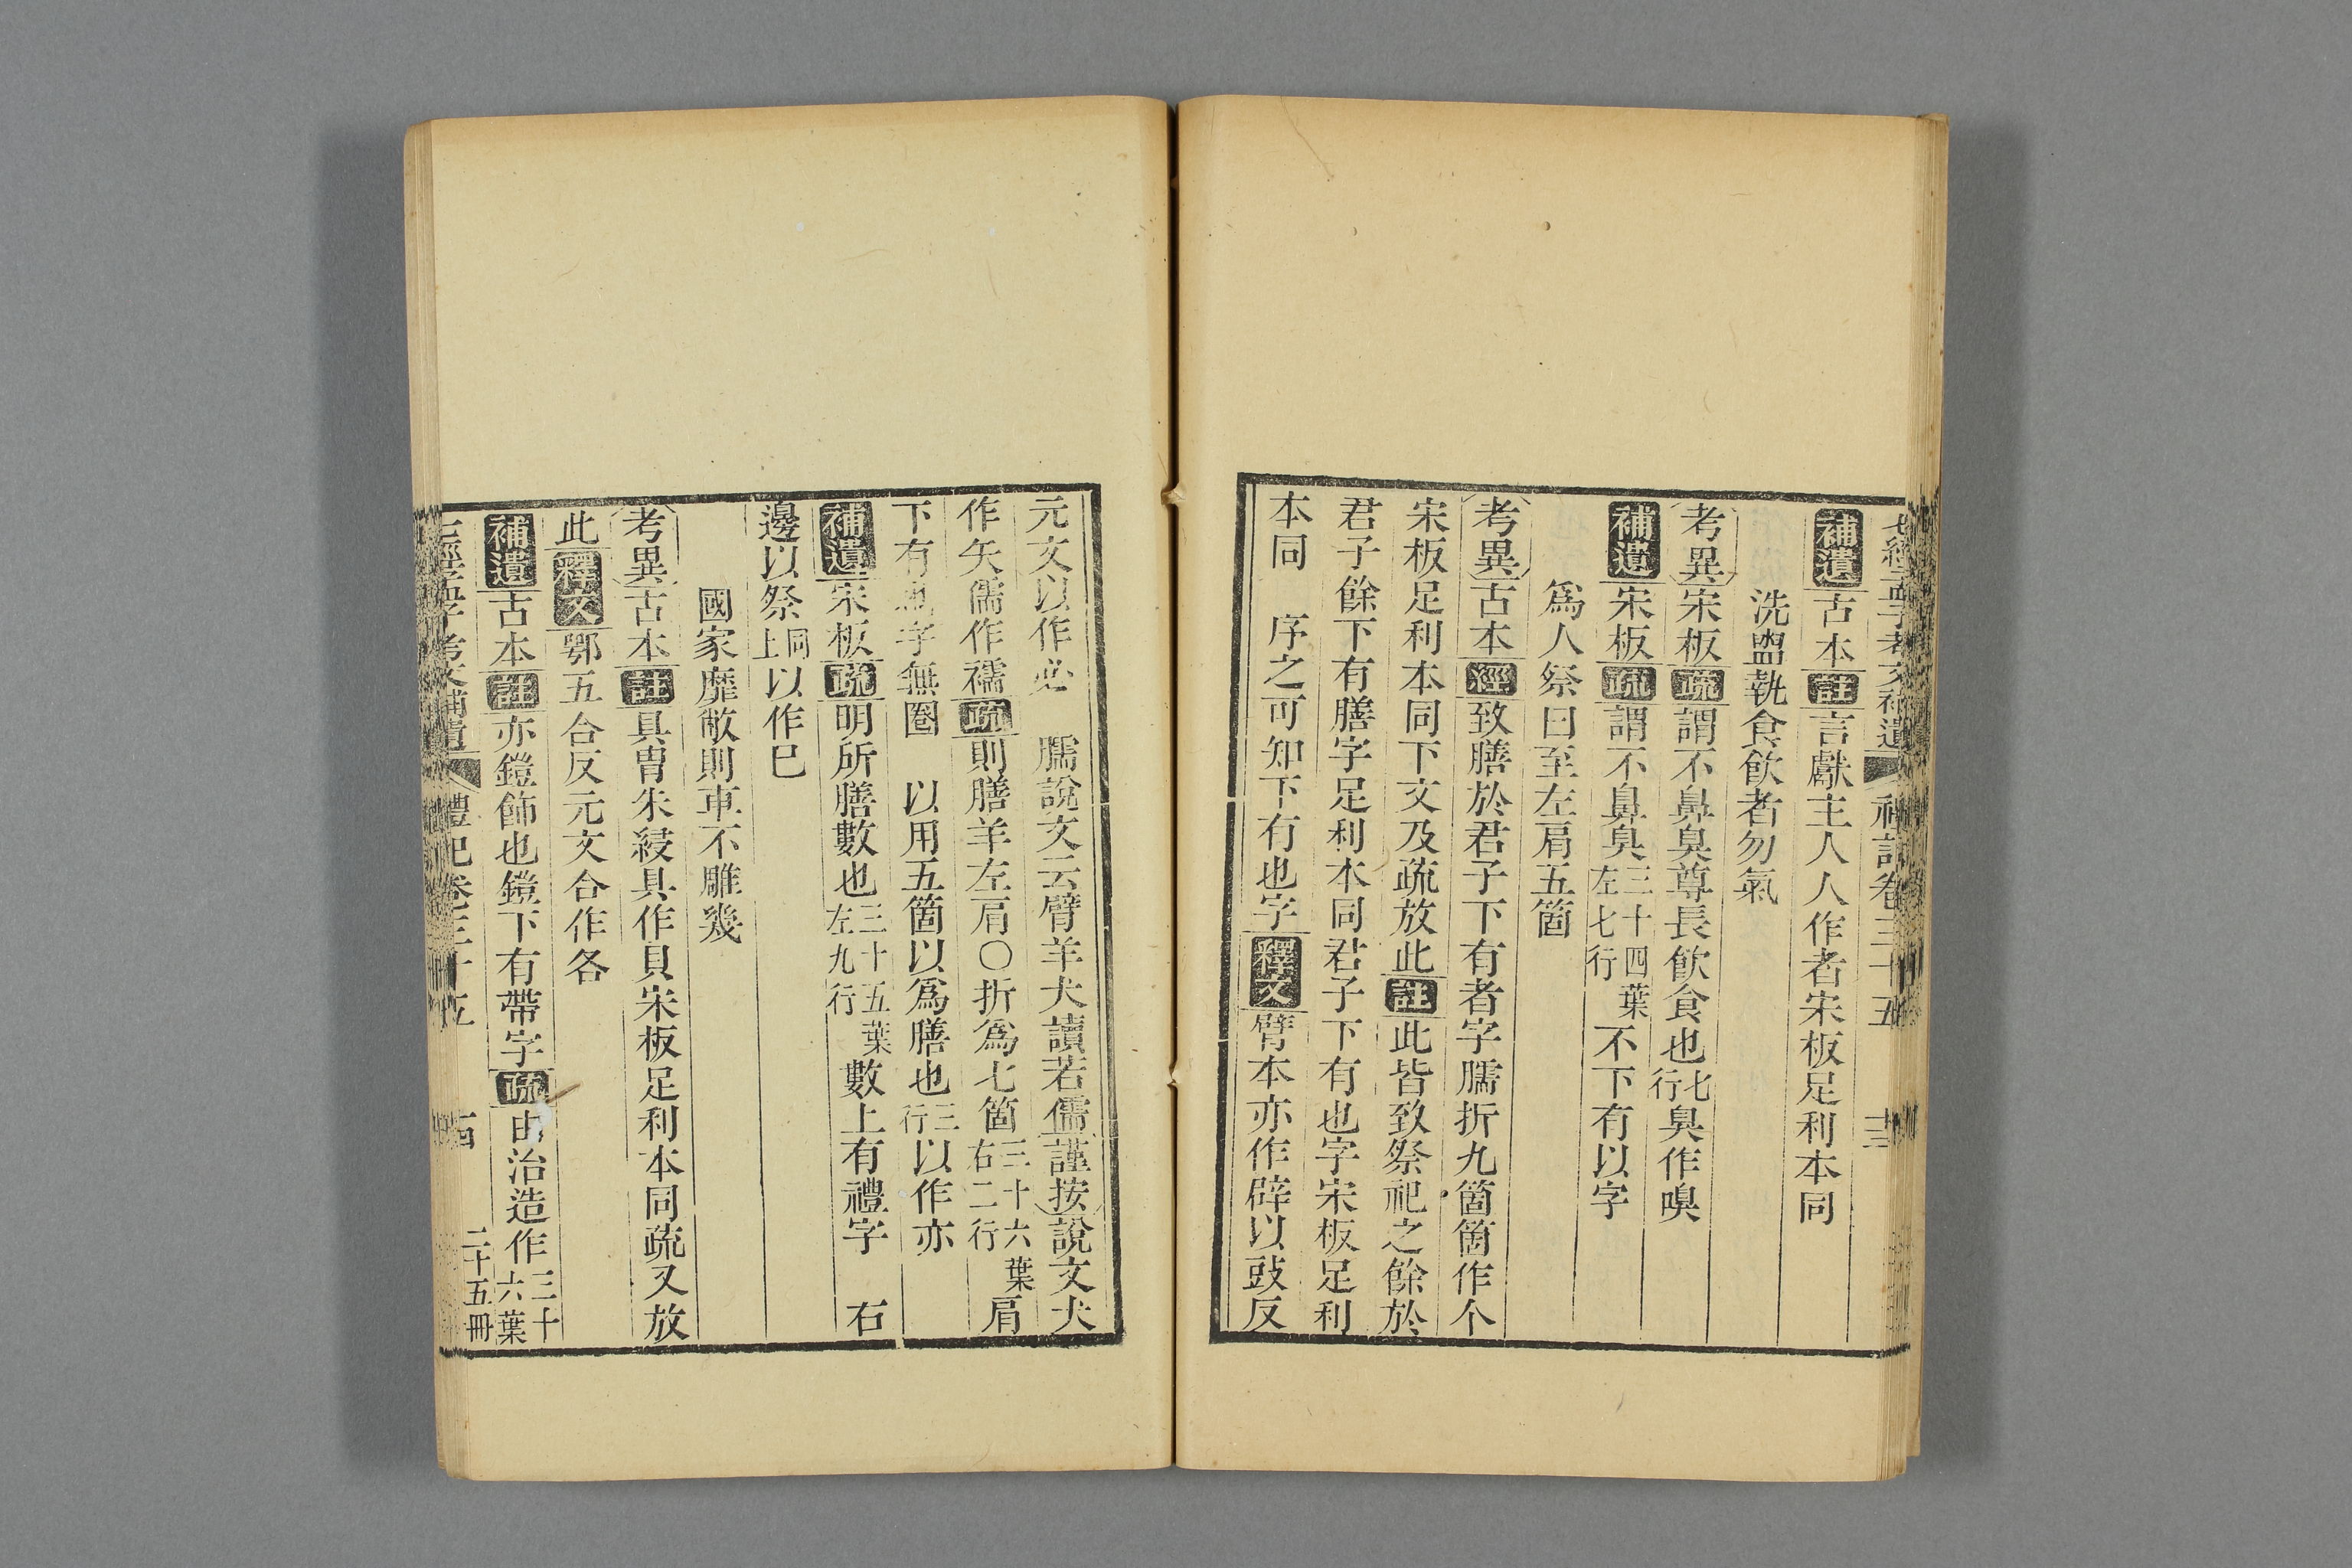 七經孟子考文補遺 禮記卷三十五 十三
補遺古本註言獻主人人作者宋板足利本同
洗盥執食飲者勿氣
考異宋板疏謂不鼻臭尊長飲食也七行臭作嗅
補遺宋板疏謂不鼻臭三十四葉左七行不下有以字
爲人祭曰至左肩五箇
考異古本經致膳於君子下有者字臑折九箇箇作个
宋板足利本同下文及疏放此註此皆致祭祀之餘於
君子餘下有膳字足利本同君子下有也字宋板足利
本同 序之可知下有也字釋文臂本亦作辟以豉反
元文以作必 臑說文云臂羊犬讀若儒謹按說文犬
作矢儒作襦疏則膳羊左肩〇折爲七箇三十六葉右二行肩
下有也字無圈 以用五箇以爲膳也三行以作亦
補遺宋板疏明所膳數也三十五葉左九行數上有禮字 右
邊以祭同上以作巳
國家靡敝則車不雕幾
考異古本註具冑朱綅具作貝宋板足利本同疏又放
此釋文鄂五合反元文合作各
補遺古本註亦鎧飾也鎧下有帶字疏由治造作三十六葉
七經孟子考文補遺 禮記卷三十五 十四 二十五冊